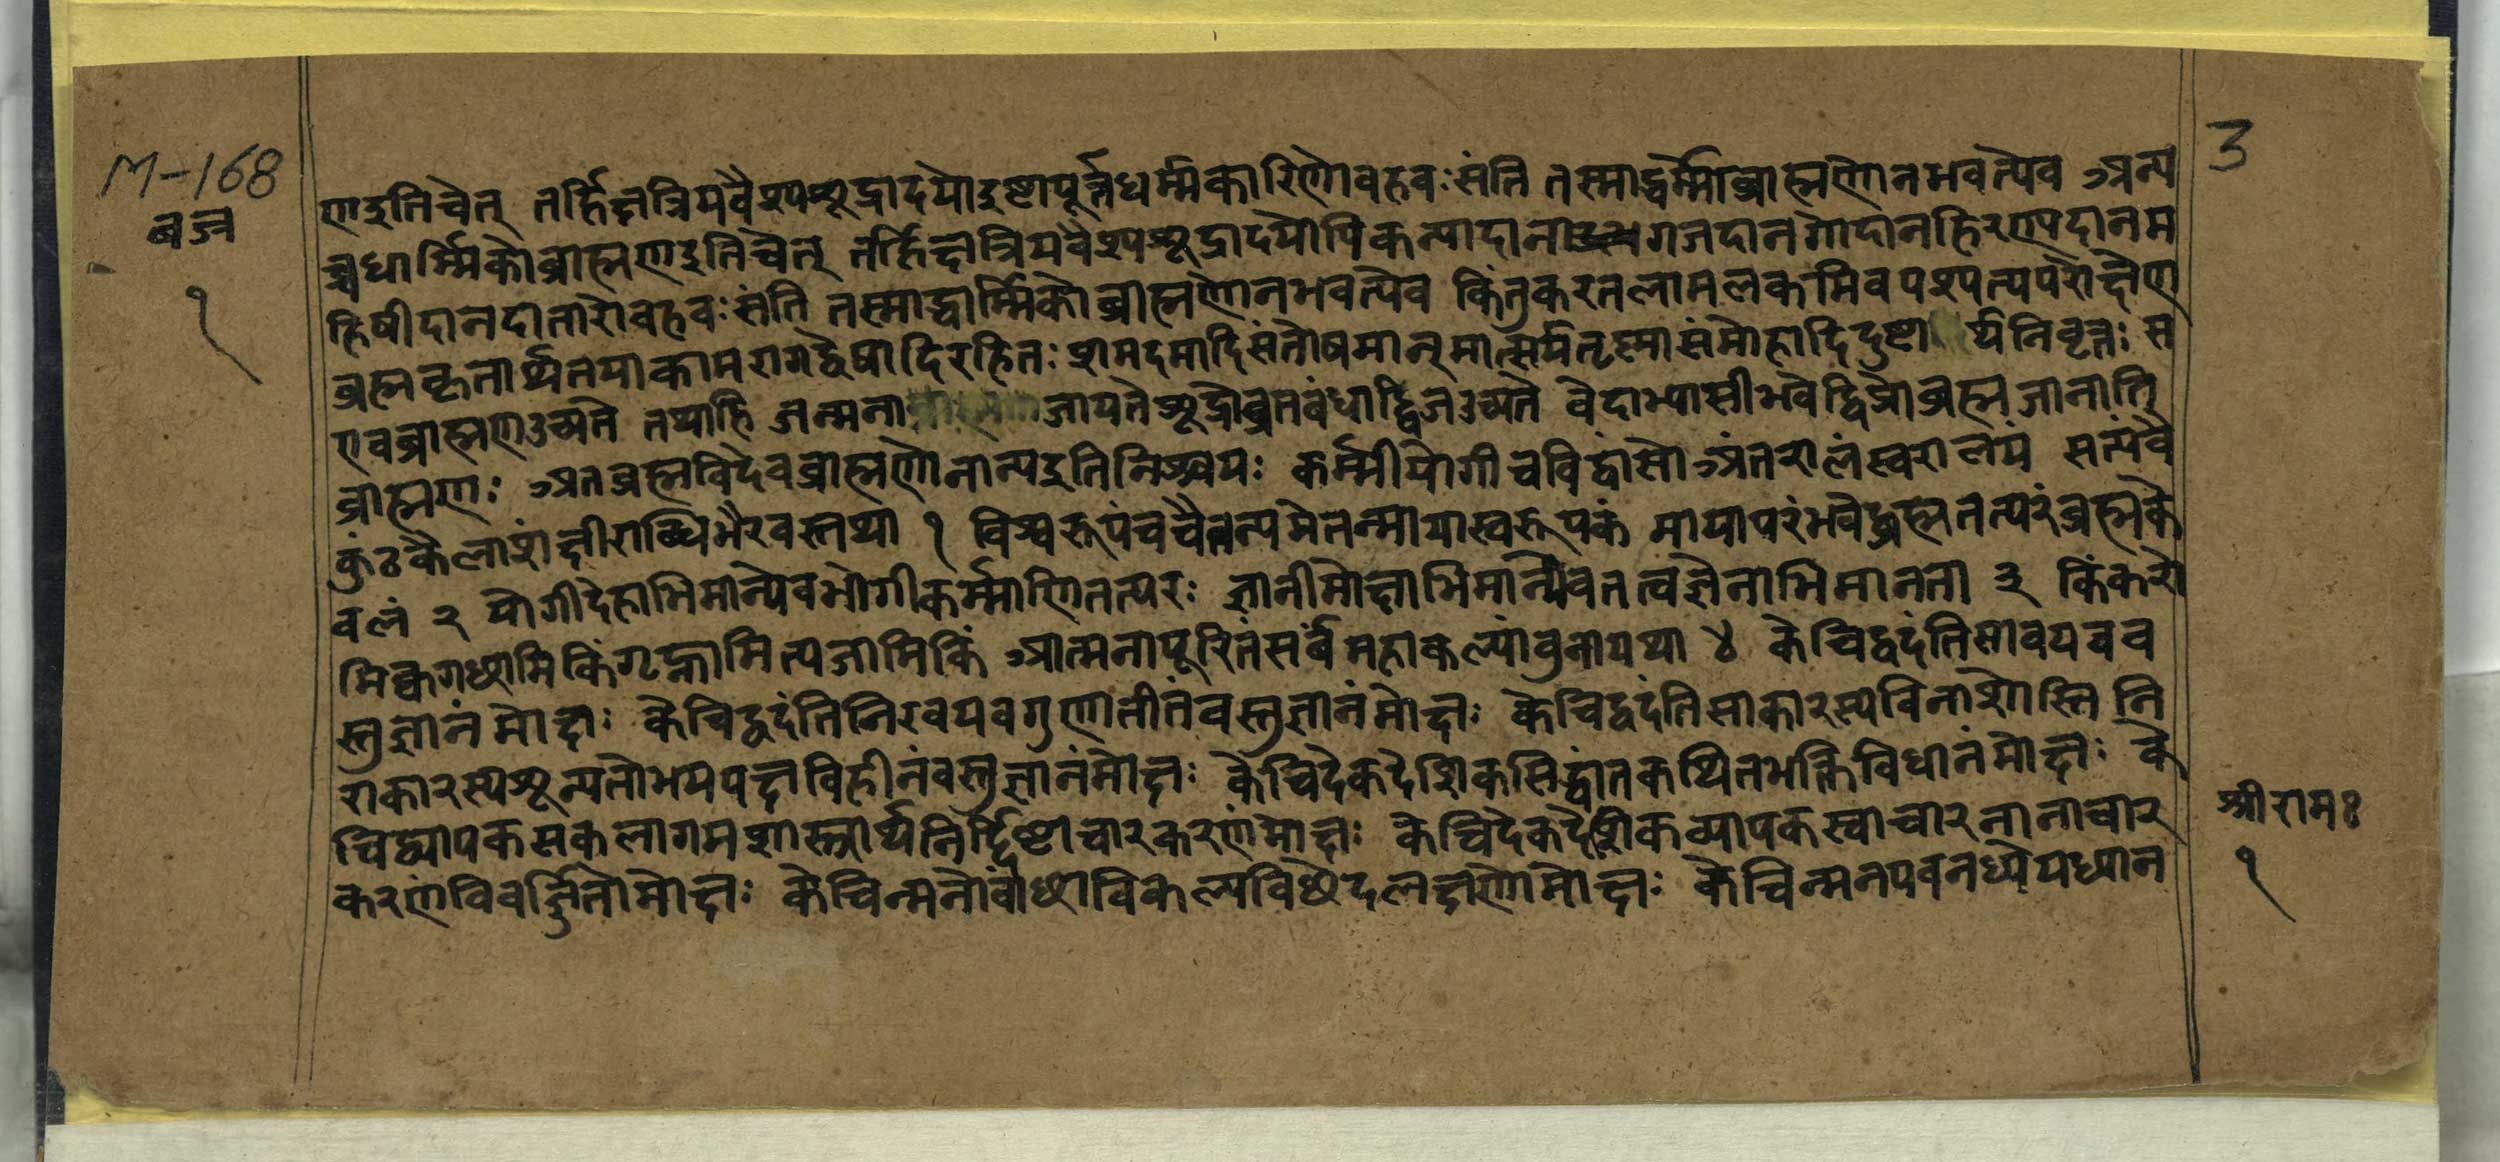 M-168
3
वज्र
१
णइतिचेत् तर्हिक्षत्रियवैश्यशूद्रादयोइष्टापूर्त्तधर्म्मकारिणोवहवःसंति तस्माद्धर्म्माब्राह्मणोनभवत्येव अन्य
च्चधार्म्मिकोब्राह्मणइतिचेत् तर्हिक्षत्रियवैश्यशूद्रादयोपिकन्यादान गजदानगोदानहिरण्यदानम
हिषीदानदातारोवहवःसंति तस्माद्धार्म्मिकोब्राह्मणोनभवत्येव किंतुकरतलामलकमिवपश्यत्यपरोक्षेण
ब्रह्मकृतार्थतयाकामरागद्वेषादिरहितः शमदमादिसंतोषमान्मात्सर्यतृष्मासंमोहादिदुष्टा र्यनिवृत्तः स
एवब्राह्मणउच्यते तथाहि जन्मना जायतेशूद्रोव्रतवंधाद्द्विजउच्यते वेदाभ्यासीभवेद्विप्रोब्रह्मजानाति
ब्राह्मणः अतब्रह्मविदेवब्राह्मणोनान्यइतिनिश्चयः कर्म्मीयोगीचविद्वांसोअंतरालंस्वरालयं सत्यंवै
कुंठकैलाशंक्षीराब्धिभैरवस्तथा १ विश्वरूपंचचैतन्यमेतन्मायास्वरूपकं मायापरंभवेद्ब्रह्मतत्परंब्रह्मके
वलं २ योगीदेहाभिमान्येवभोगीकर्म्माणितत्परः ज्ञानीमोक्षाभिमान्येवतत्वज्ञेनाभिमानता ३ किंकरो
मिक्वगछामिकिंगृह्नामित्यजामिकिं आत्मनापूरितंसर्वंमहाकल्पांवुनायथा ४ केचिद्वदंतिसावयवव
स्तुज्ञानंमोक्षः केचिद्वदंतिनिरवयवगुणातीतंवस्तुज्ञानंमोक्षः केचिद्वदंतिसाकारस्यविनाशोस्ति नि
राकारस्यशून्यतोभयपक्षविहीनंवस्तुज्ञानंमोक्षः केचिदेकदेशिकसिद्धांतकथितभक्तिविधानंमोक्षः के
चिद्व्यापकसकलागमशास्त्रार्थनिर्द्दिष्टाचारकरणंमोक्षः केचिदेकदेशिकव्यापकस्वाचारनानाचार
करणंविवर्ज्जितोमोक्षः केचिन्मनोवांछाविकल्पविछेदलक्षणोमोक्षः केचिन्मनपवनध्येयध्यान
श्रीरामः
१